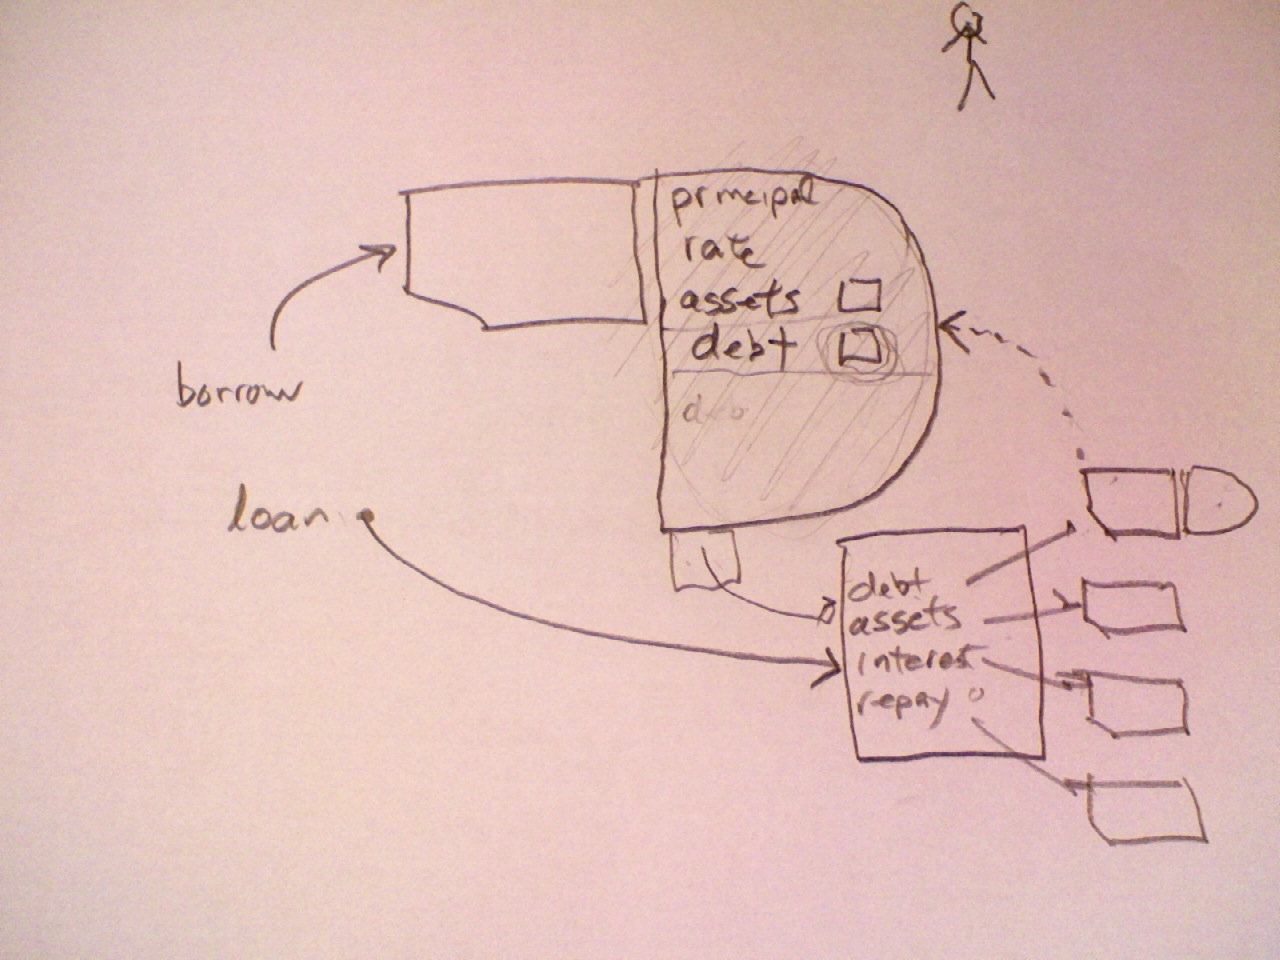 principal
rate
assets
debt
borrow
loan
debt
assets
interest
repay